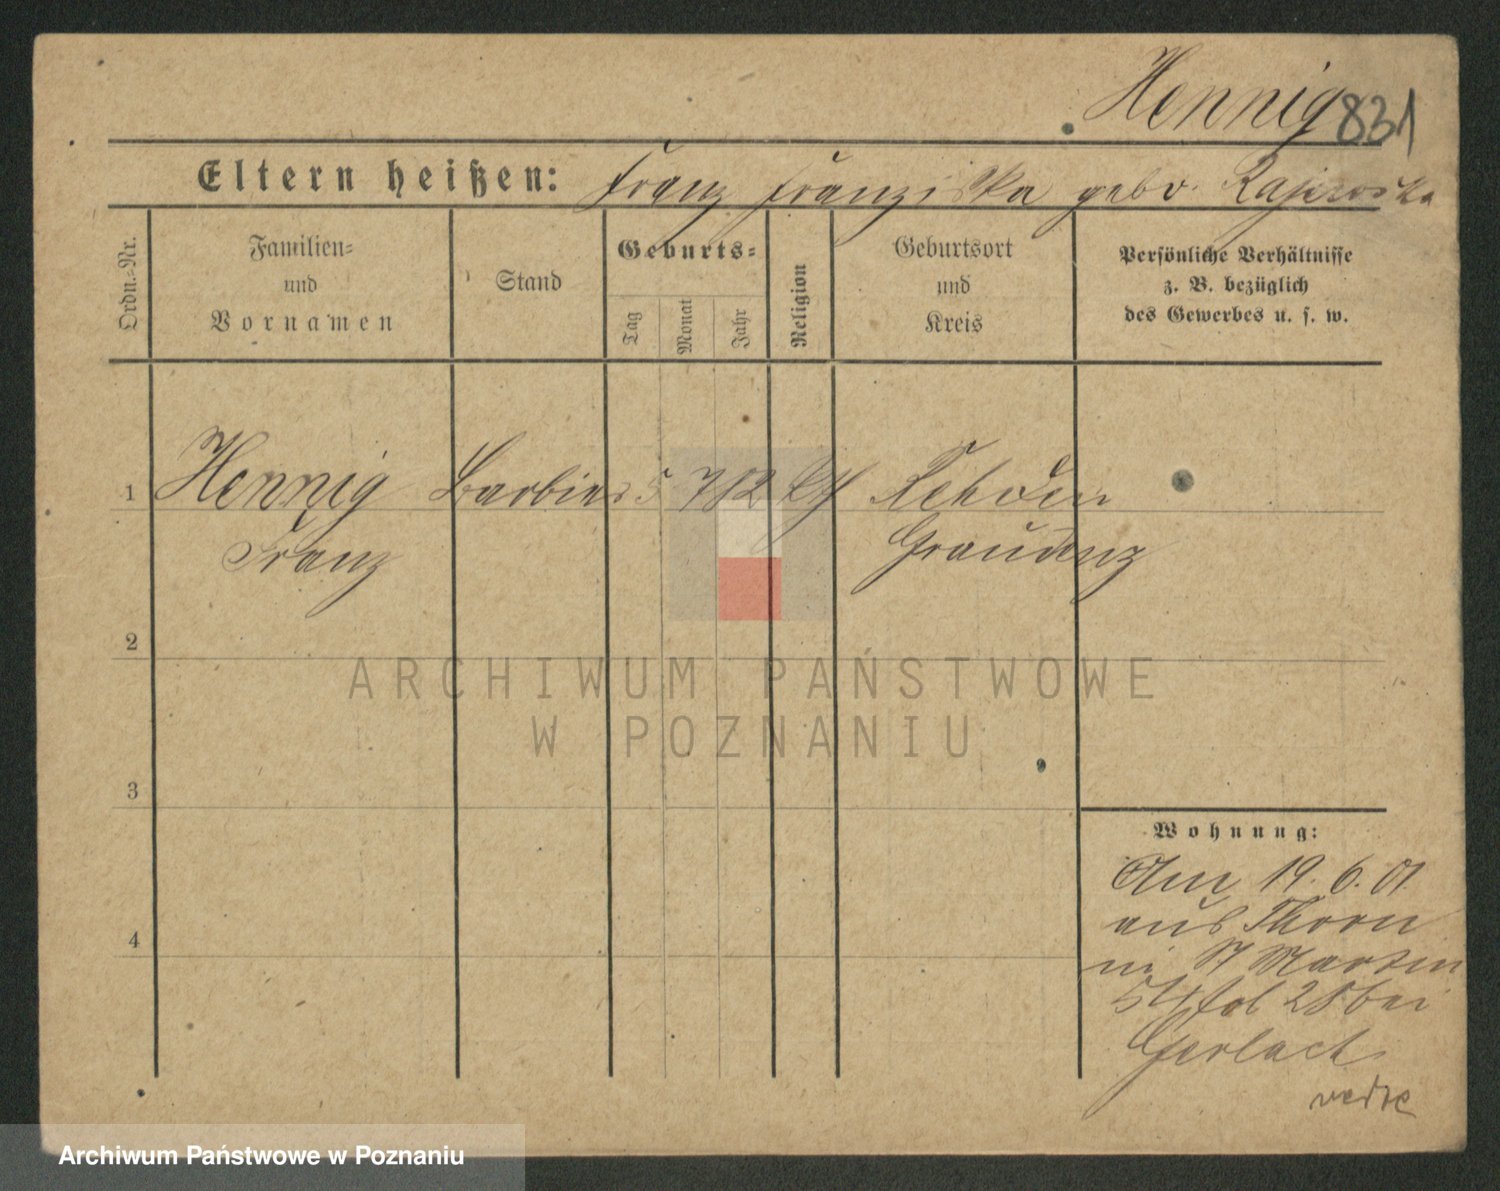 Hennig 831
Eltern heißen: Franz Franziska geb.
Ordn.-Nr.
Familien-
und
Vornamen
Stand
Geburts-
Tag
Monat
Jahr
Religion
Geburtsort
und
Kreis
Persönliche Verhältnisse
z. B. bezüglich
des Gewerbes u. s. w.
1 Hennig Barbier 5 7 82 Rehden
Franz Graudenz
2
3
4
Wohnung:
Am 19. 6. 01
aus Thorn
St Martin
54 fol 28 bei
Gerlach
ARCHIWUM PAŃSTWOWE
W POZNANIU
Archiwum Państwowe w Poznaniu